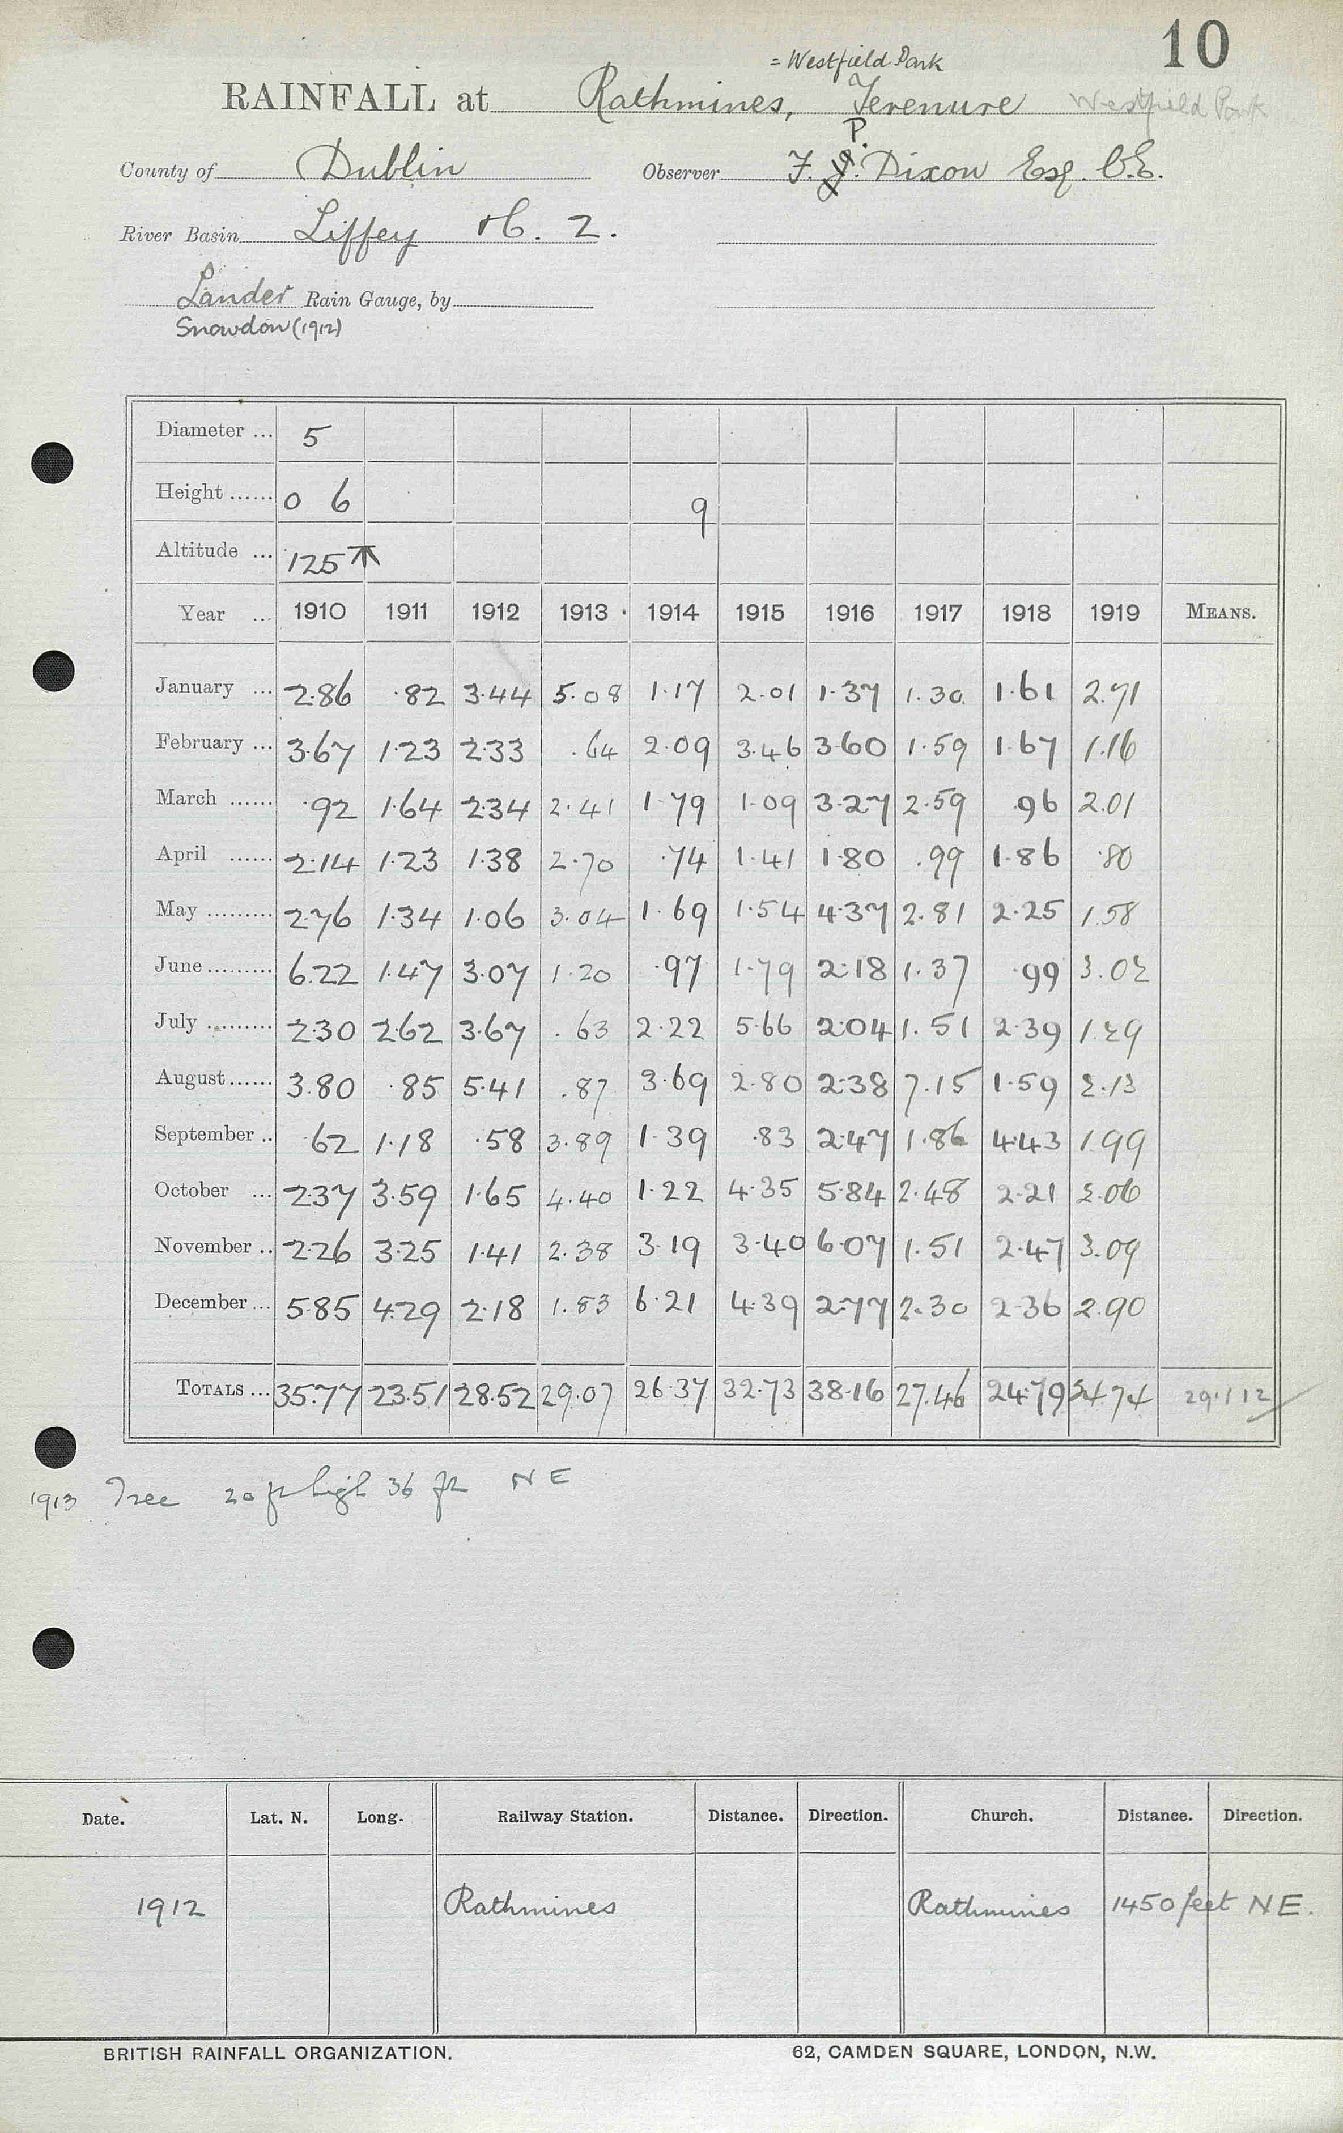 10
= Westfield Park
RAINFALL at Rathmines, Terenure Westfield Park
P.
County of Dublin Observer F. J. Dixon Esq. C.E.
River Basin Liffey 2.
Lander Rain Gauge, by
Snowdon (1912)
Diameter ... 5
Height ...... 0 6 9
Altitude ... 125
Year ... 1910 1911 1912 1913 1914 1915 1916 1917 1918 1919 MEANS.
January ... 2.86 .82 3.44 5.08 1.17 2.01 1.37 1.30 1.61 2.71
February ... 3.67 1.23 2.33 .64 2.09 3.46 3.60 1.59 1.67 1.16
March ...... .92 1.64 2.34 2.41 1.79 1.09 3.27 2.59 .96 2.01
April ...... 2.14 1.23 1.38 2.70 .74 1.41 1.80 .99 1.86 .80
May ......... 2.76 1.34 1.06 3.04 1.69 1.54 4.37 2.81 2.25 1.58
June ......... 6.22 1.47 3.07 1.20 .97 1.79 2.18 1.37 .99 3.02
July ......... 2.30 2.62 3.67 .63 2.22 5.66 2.04 1.51 2.39 1.29
August ...... 3.80 .85 5.41 .87 3.69 2.80 2.38 7.15 1.59 2.13
September .. .62 1.18 .58 3.89 1.39 .83 2.47 1.86 4.43 1.99
October ... 2.37 3.59 1.65 4.40 1.22 4.35 5.84 2.48 2.21 2.06
November .. 2.26 3.25 1.41 2.38 3.19 3.40 6.07 1.51 2.47 3.09
December ... 5.85 4.29 2.18 1.83 6.21 4.39 2.77 2.30 2.36 2.90
TOTALS ... 35.77 23.51 28.52 29.07 26.37 32.73 38.16 27.46 24.79 24.74 29.112
1913 Tree 20 ft high 36 ft NE
Date. Lat. N. Long. Railway Station. Distance. Direction. Church. Distance. Direction.
1912 Rathmines Rathmines 1450 feet NE.
BRITISH RAINFALL ORGANIZATION. 62, CAMDEN SQUARE, LONDON, N.W.